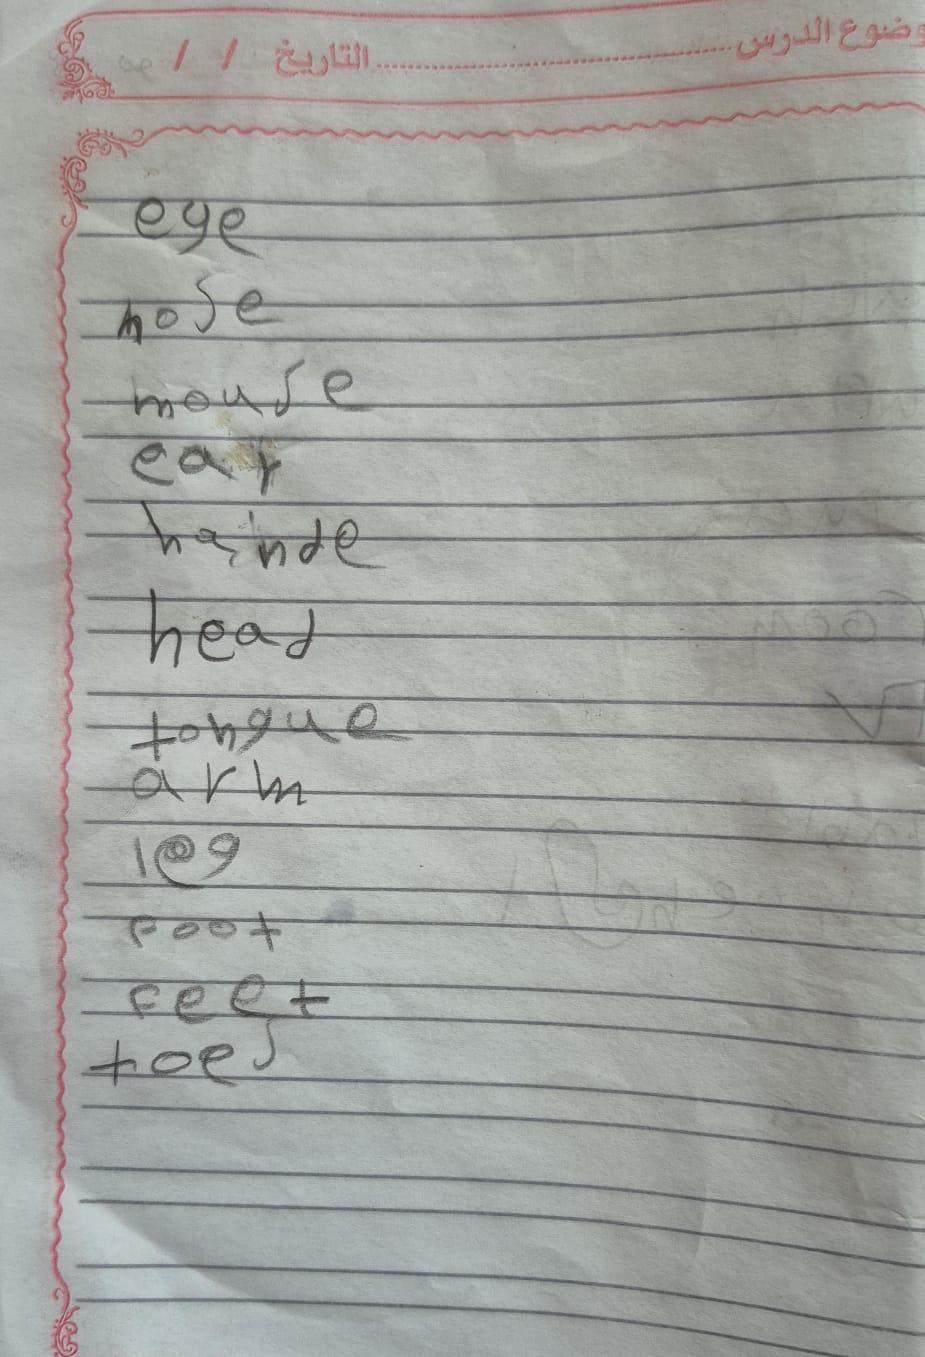 وضوع الدرس ........................ التاريخ / /
eye
nose
mouse
ear
hainde
head
tongue
arm
leg
foot
feet
toes